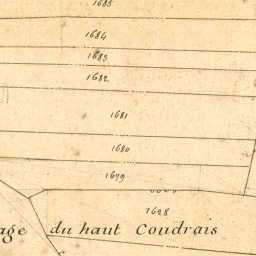 1685
1684
1683
1682
1681
1680
1679
1628
age du haut Coudrais